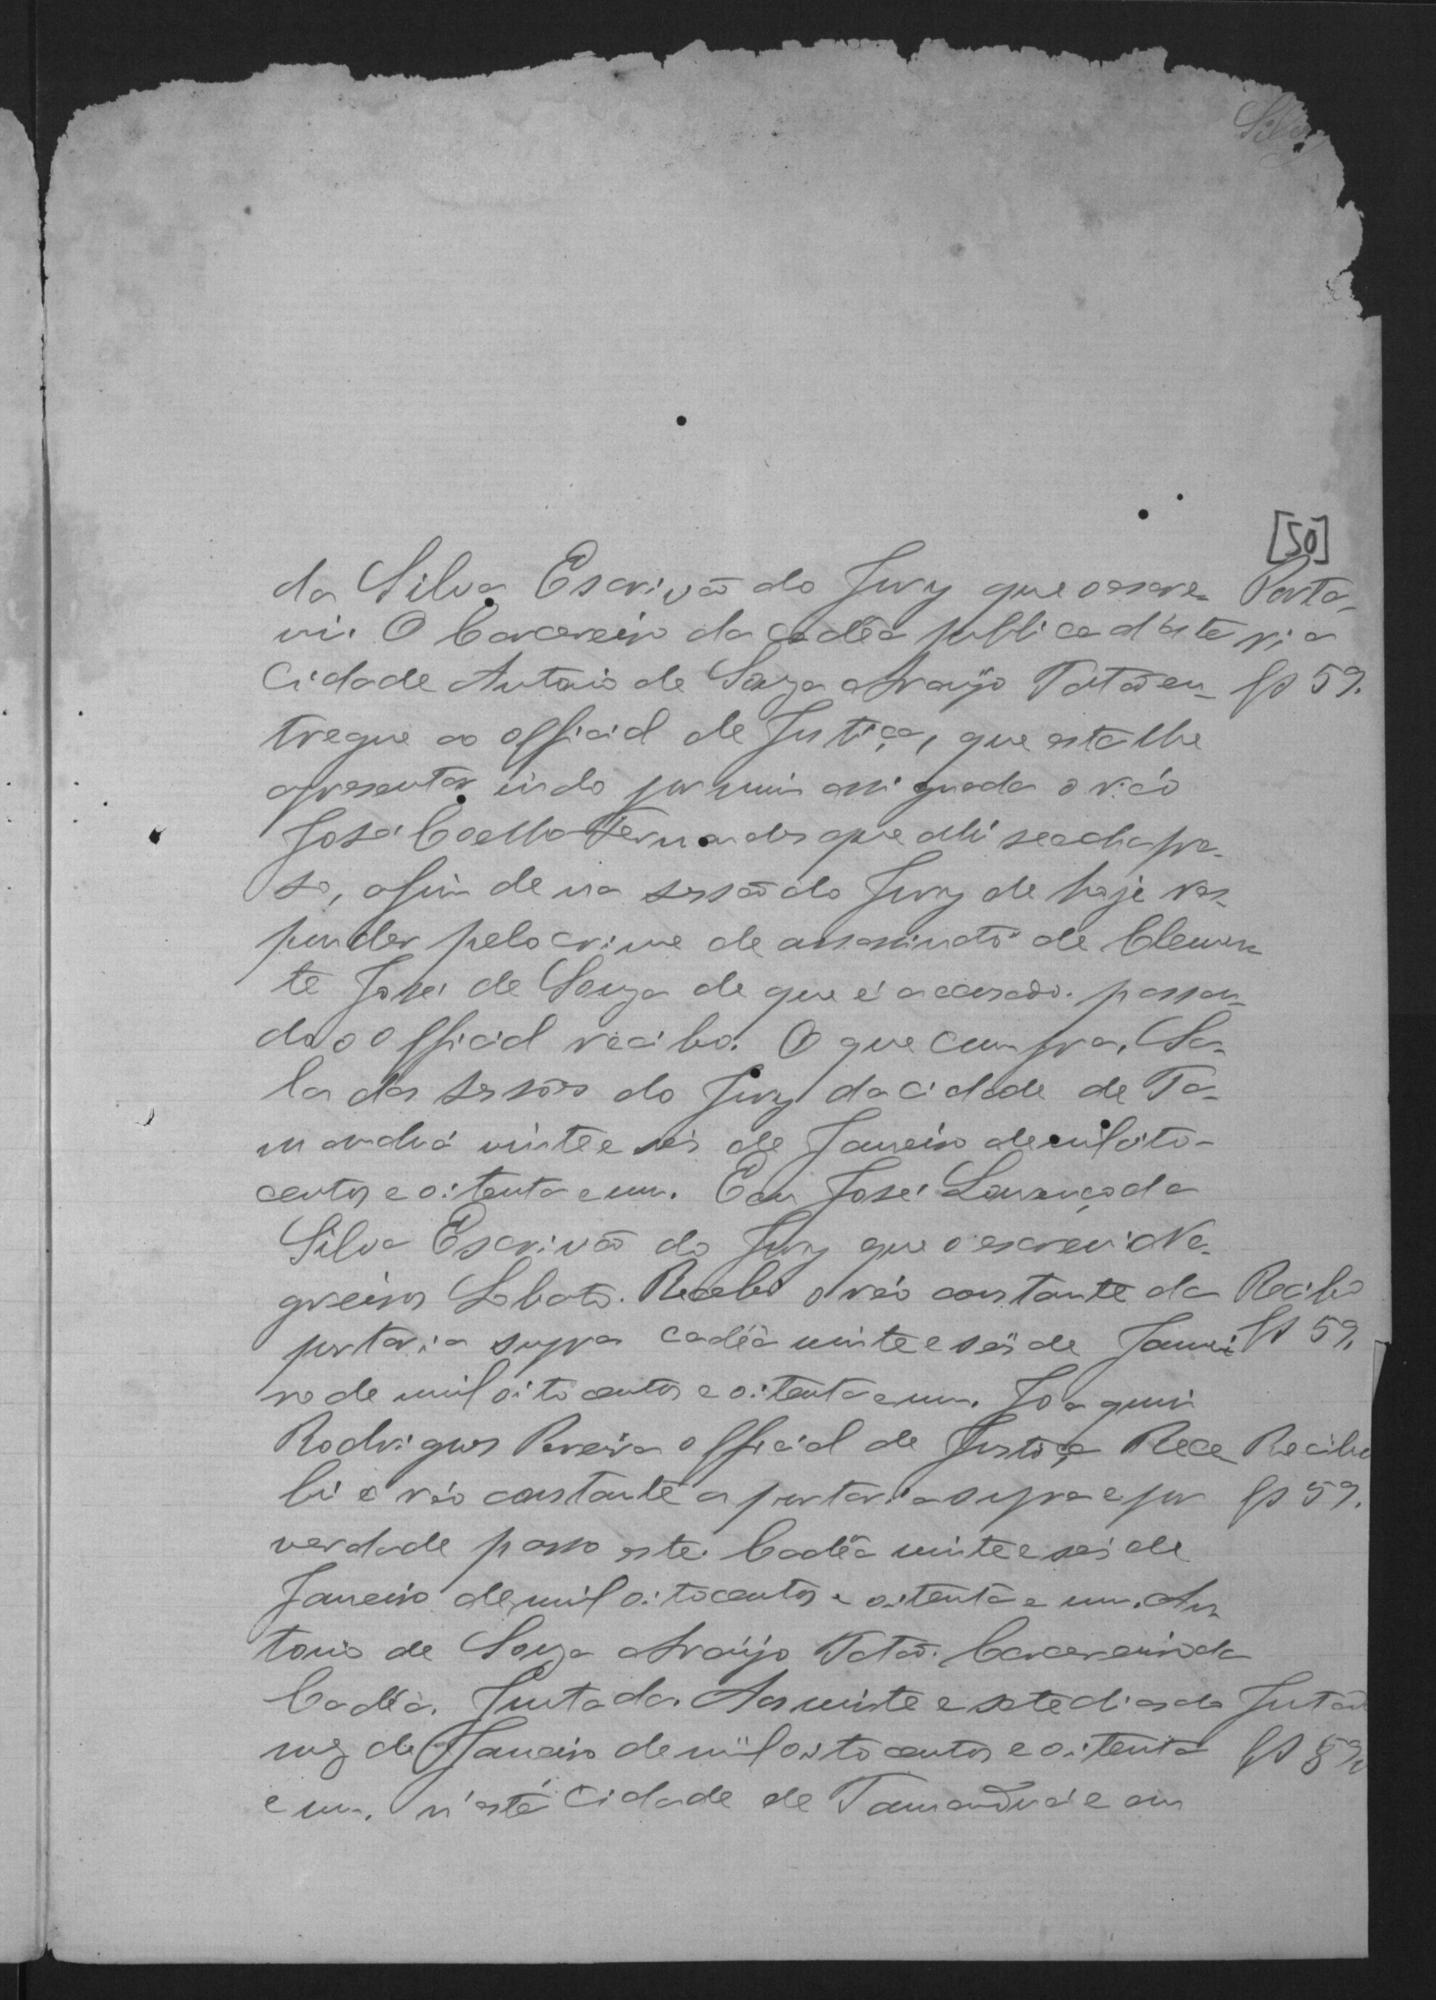 Silva
[50]
da Silva Escrivão do Jury que o escre- Porta-
vi. O Carcereiro da cadêa publica d'esta ria
Cidade Antonio de Souza Araujo Tatão en- fs 59.
tregue ao official de Justiça, que esta lhe
apresentar indo por mim assignada o réo
José Coelho Fernandes que alli se acha pre-
so, afim de na sessão do Jury de hoje res-
ponder pelo crime de assassinato de Clemen-
te José de Souza de que é accusado. passan-
do o official recibo. O que cumpra. Sa-
la das sessões do Jury da cidade de Ta-
manduá vinte e seis de Janeiro de mil oito-
centos e oitenta e um. Eu José Lourenço da
Silva Escrivão do Jury que o escrevi Ne-
greiros Lobato. Recebi o réo constante da Recibo
portaria supra cadêa vinte e seis de Janei- fs 59.
ro de mil oitocentos e oitenta e um. Joaquim
Rodrigues Pereira official de Justiça Rece- Recibo
bi o réo constante a portaria supra e por fs 59.
verdade passo este. Cadêa vinte e seis de
Janeiro de mil oitocentos e oitenta e um. An-
tonio de Souza Araujo Tatão. Carcereiro da
Cadêa. Juntada. Aos vinte e sete dias do Juntad
mez de Janeiro de mil oitocentos e oitenta fs 59
e um. n'esta Cidade de Tamanduá e em